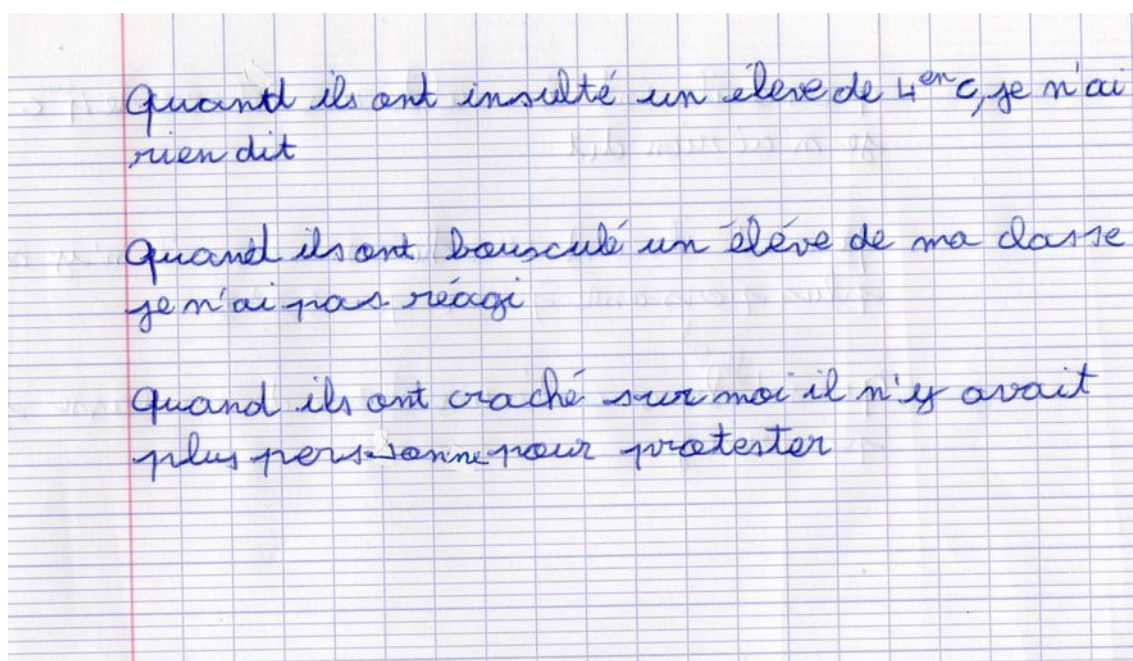 Quand ils ont insulté un élève de 4en C, je n'ai
rien dit
Quand ils ont bousculé un élève de ma classe
je n'ai pas réagi
Quand ils ont craché sur moi il n'y avait
plus personne pour protester